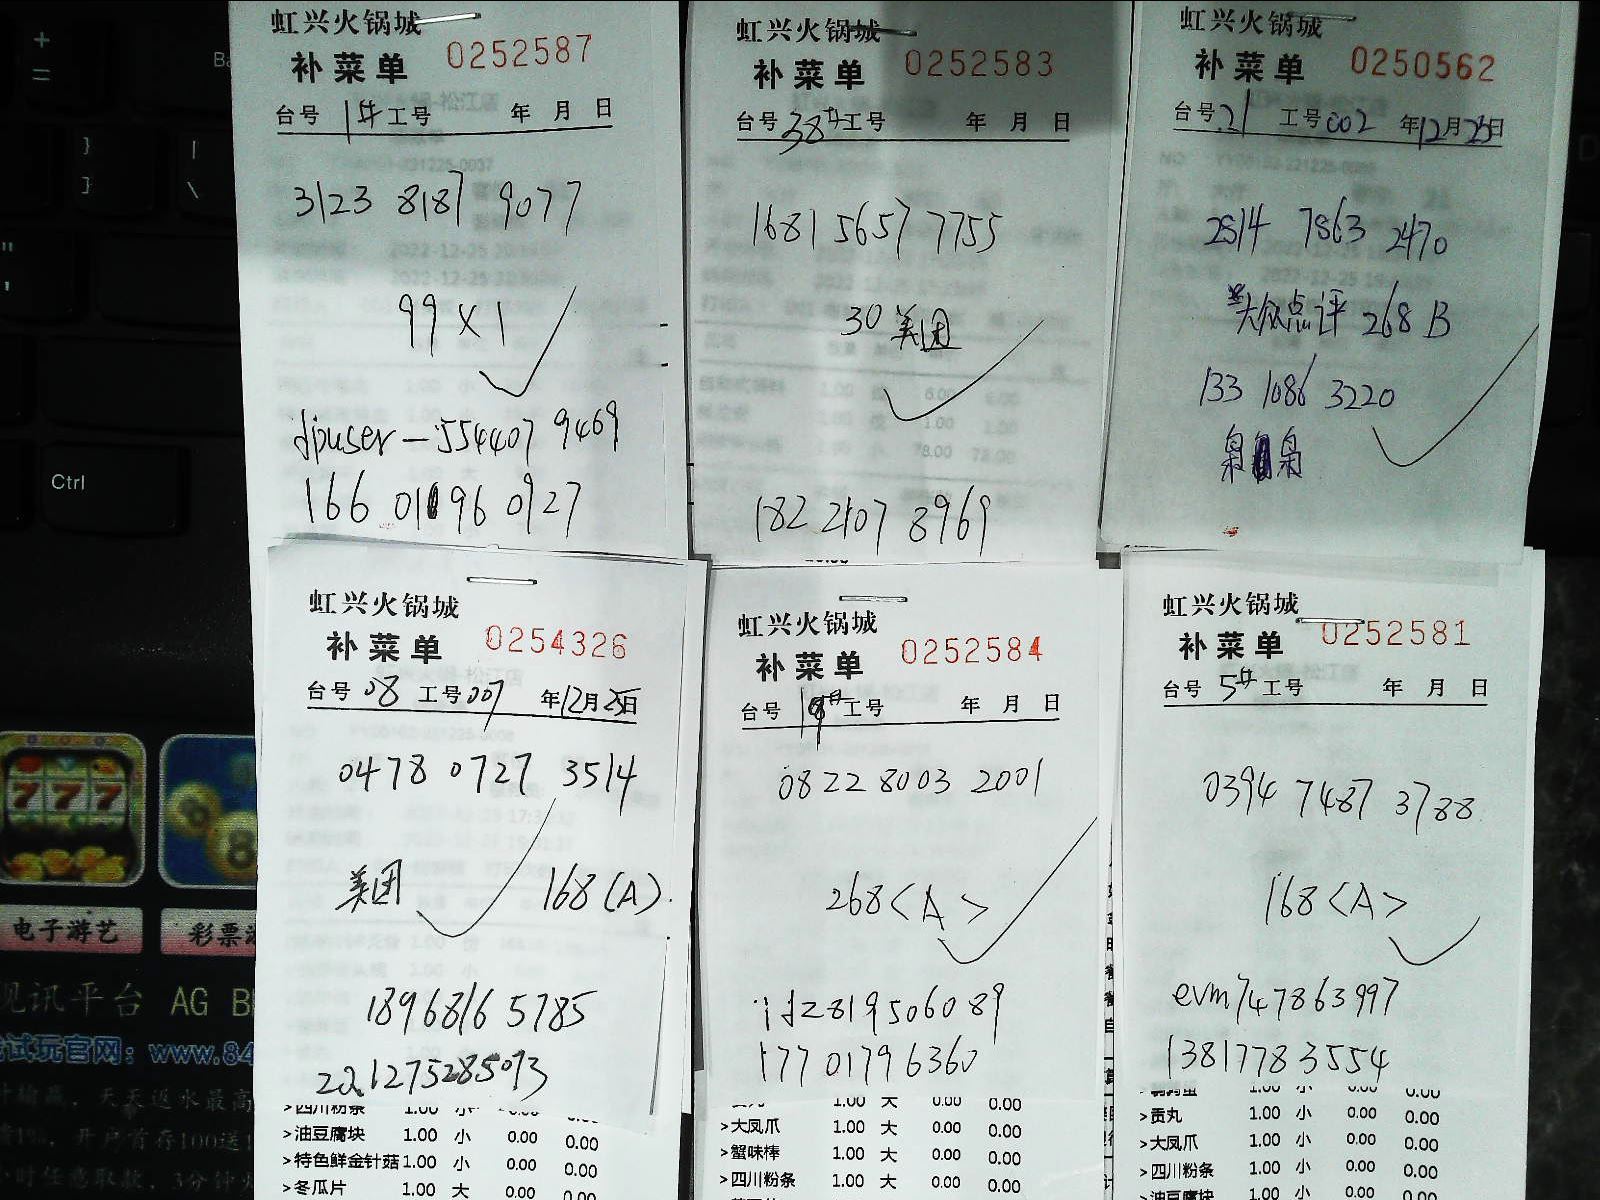 虹兴火锅城
补菜单 0252587
台号 1# 工号 年 月 日
3123 8187 9077
99×1
dpuser-554407 9469
166 0196 0927
虹兴火锅城
补菜单 0252583
台号 38# 工号 年 月 日
1681 5657 7755
30 美团
182 2107 8969
虹兴火锅城
补菜单 0250562
台号 21 工号 002 年12月25日
2514 7863 2470
大众点评 268 B
133 1086 3220
枭枭
虹兴火锅城
补菜单 0254326
台号 08 工号 007 年12月25日
0478 0727 3514
美团 168(A).
18968165785
>四川粉条 1.00 小 0.00 0.00
>油豆腐块 1.00 小 0.00 0.00
>特色鲜金针菇 1.00 小 0.00 0.00
>冬瓜片 1.00 大 0.00 0.00
虹兴火锅城
补菜单 0252584
台号 工号 年 月 日
0822 8003 2001
268<A>
17701796360
1.00 大 0.00 0.00
>大凤爪 1.00 大 0.00 0.00
>蟹味棒 1.00 大 0.00 0.00
>四川粉条 1.00 小 0.00 0.00
虹兴火锅城
补菜单 0252581
台号 5# 工号 年 月 日
0394 7487 3788
168<A>
evm747863997
13817783554
>贡丸 1.00 小 0.00 0.00
>大凤爪 1.00 小 0.00 0.00
>四川粉条 1.00 小 0.00 0.00
>油豆腐块 1.00 小 0.00 0.00
Ctrl
777
8
电子游艺
彩票
视讯平台 AG
试玩官网：www.84